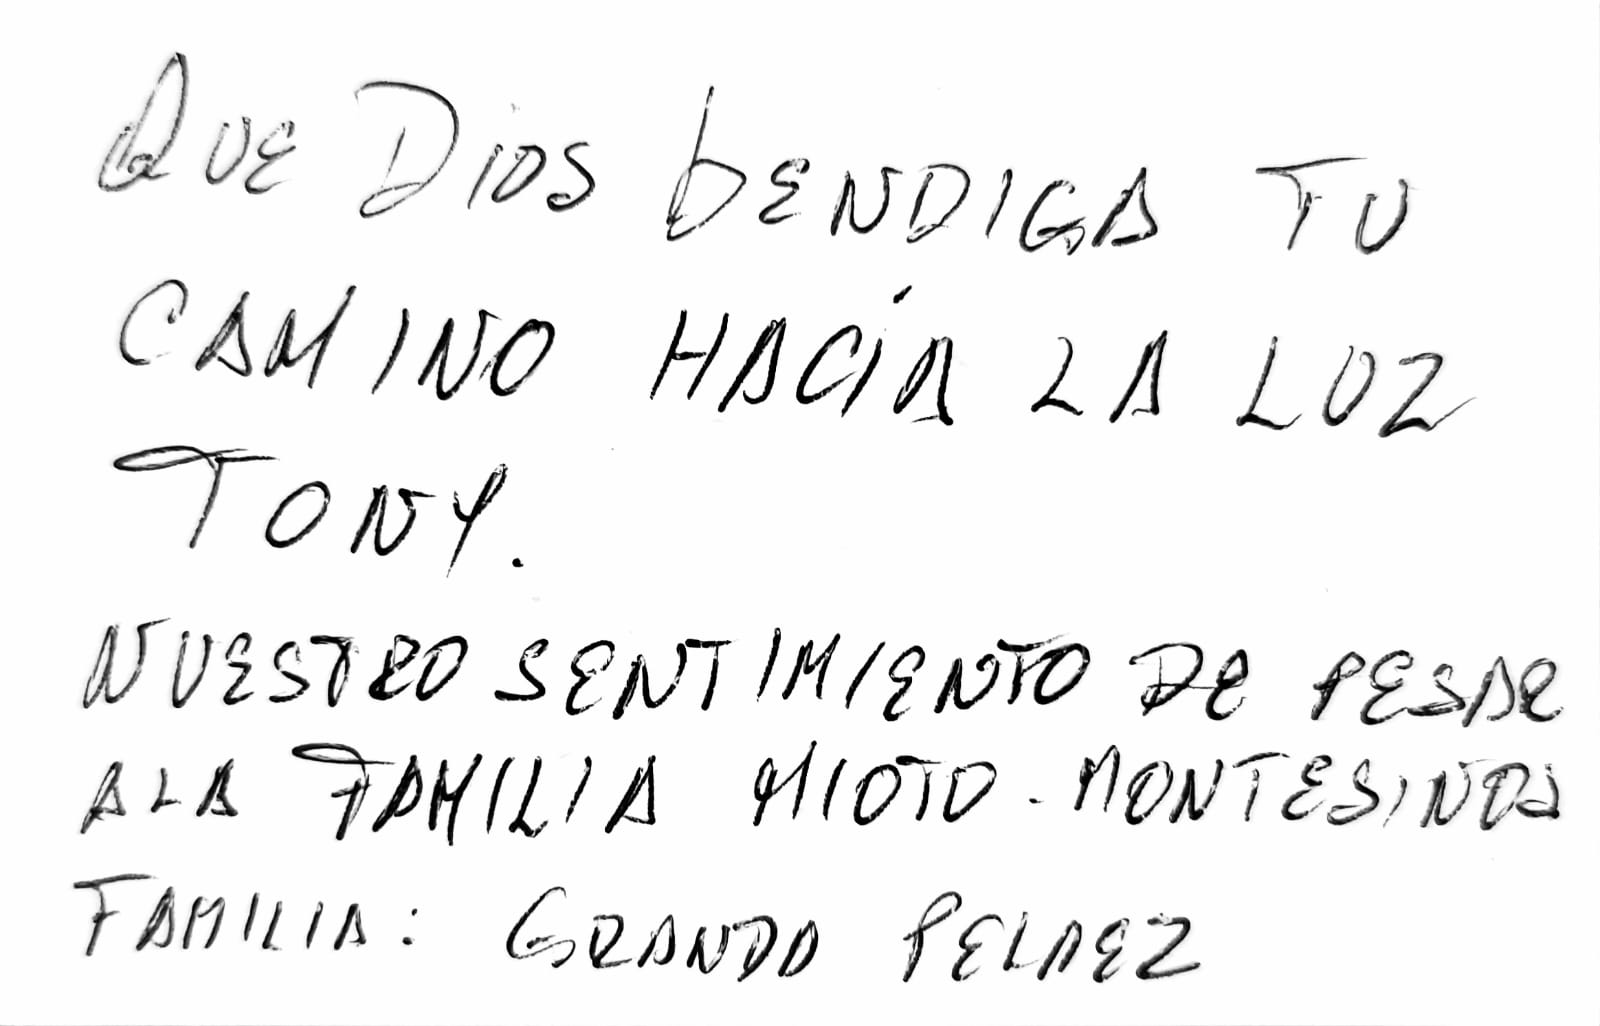 QUE DIOS bENDIGA TU
CAMINO HACÍA LA LUZ
TONY.
NUESTRO SENTIMIENTO DE PESAR
A LA FAMILIA MIOTO - MONTESINOS
FAMILIA: GRANDA PELAEZ